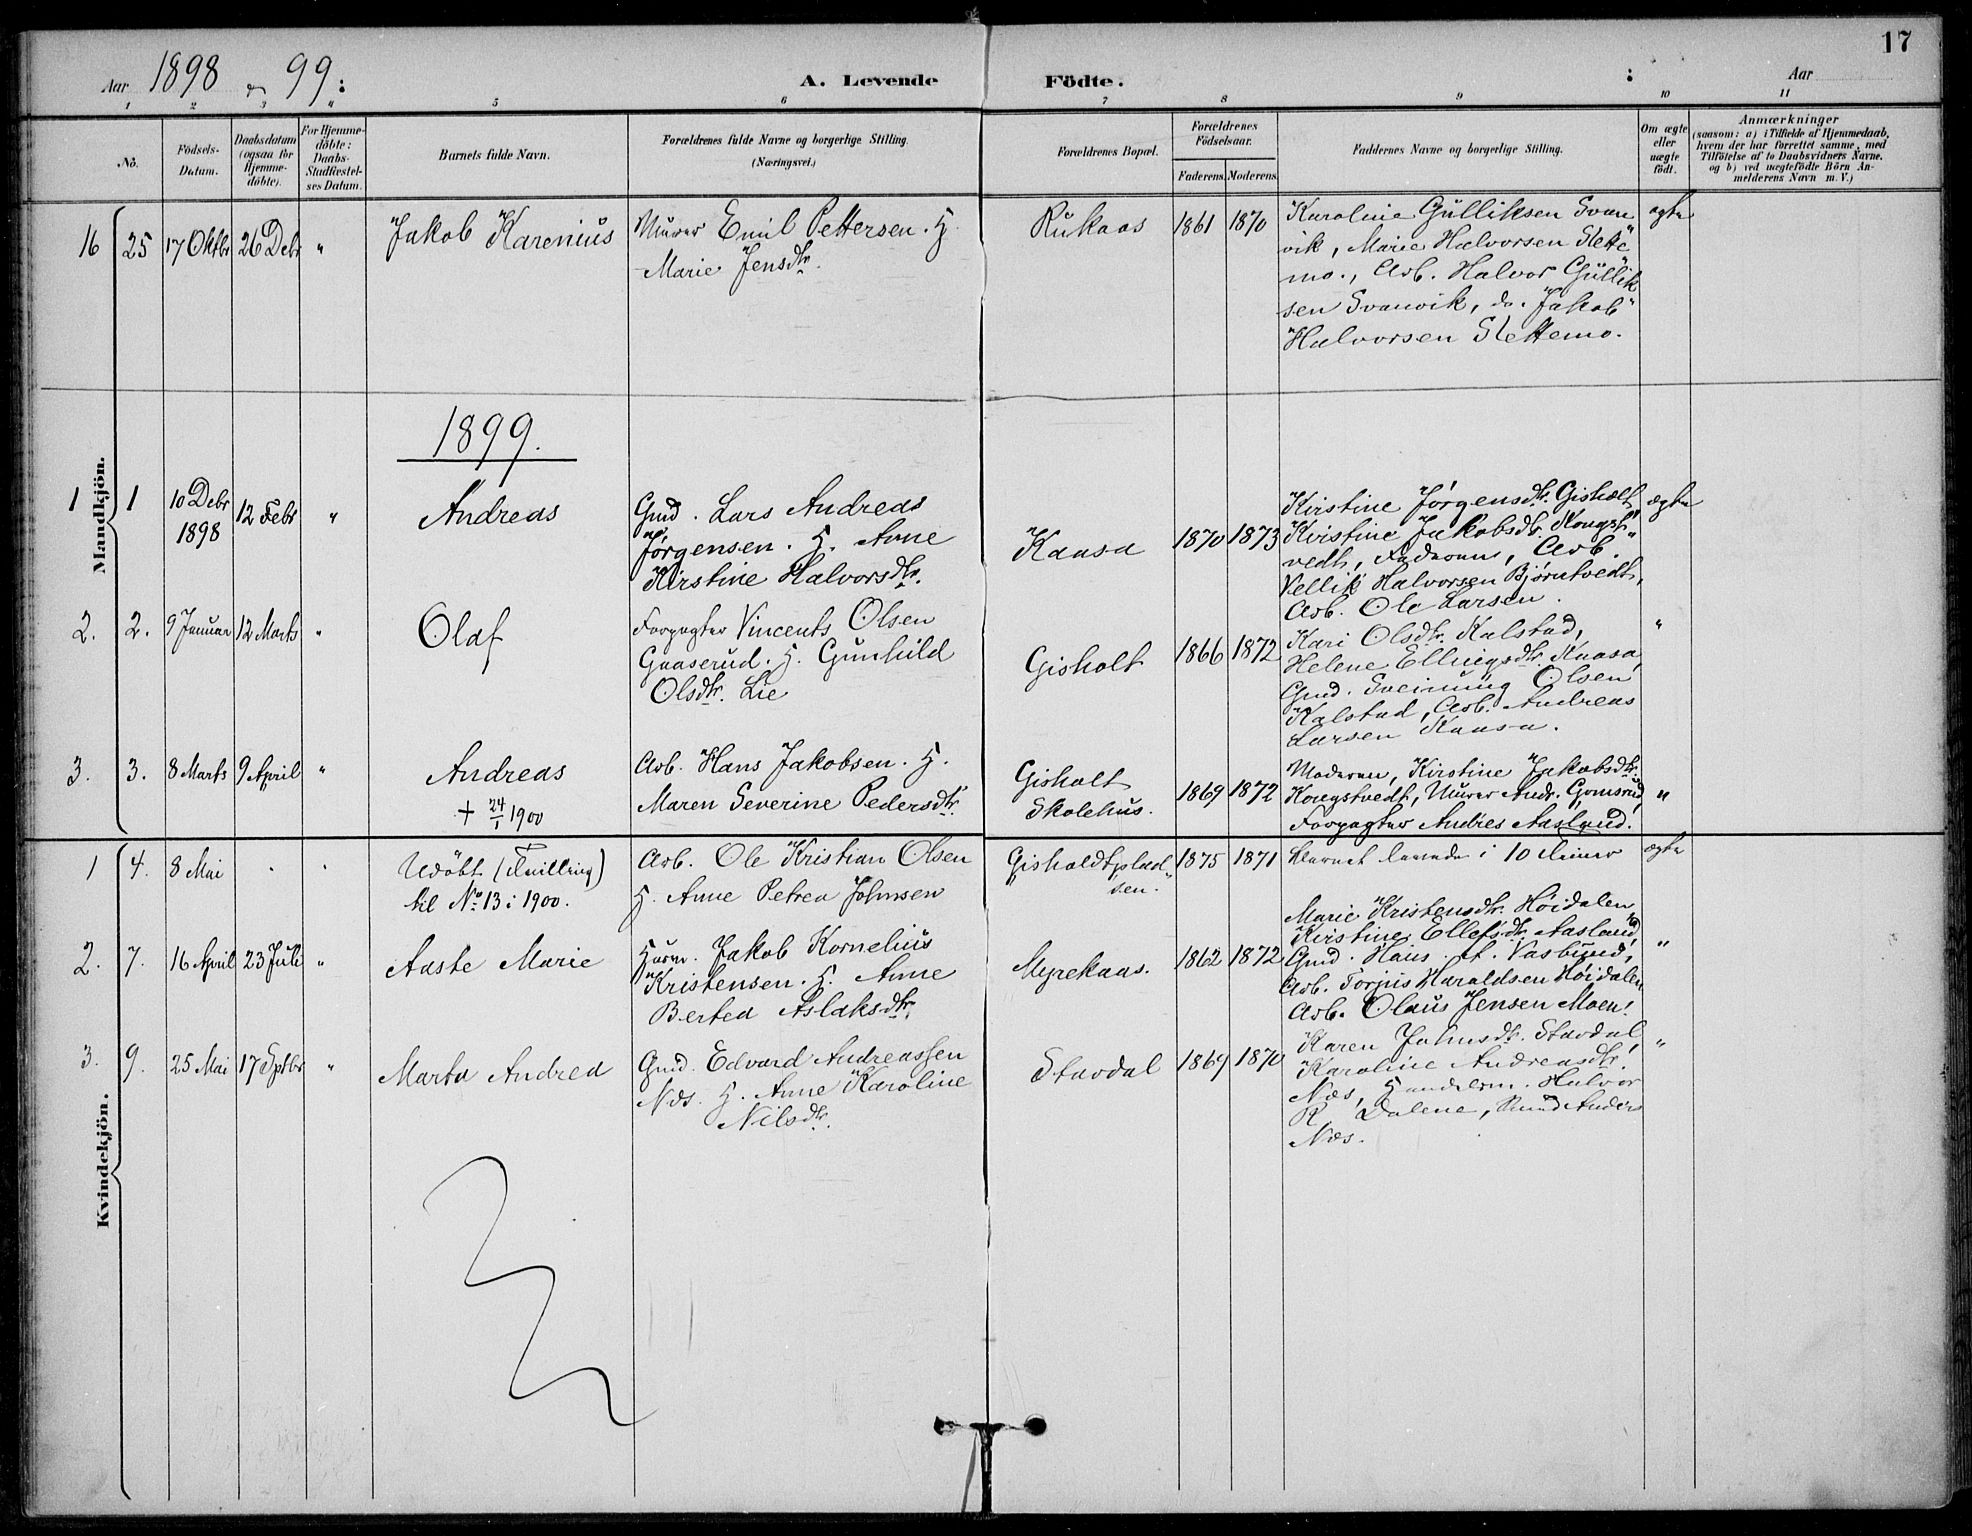 17
Aar 1898 og 99:
A. Levende Födte.
Aar
1 2 3 4 5 6 7 8 9 10 11
Nö.
Födsels-
Datum.
Daabsdatum
(ogsaa for
Hjemme-
döbte).
For Hjemme-
döbte:
Daabs-
Stadfæstel-
ses Datum.
Barnets fulde Navn.
Forældrenes fulde Navne og borgerlige Stilling.
(Næringsvei.)
Forældrenes Bopæl.
Forældrenes
Födselsaar.
Faderens. Moderens.
Faddernes Navne og borgerlige Stilling.
Om ægte
eller
uægte
födt.
Anmærkninger
(saasom: a) i Tilfælde af Hjemmedaab,
hvem der har forrettet samme, med
Tilföielse af to Daabsvidners Navne.
og b) ved uægtefödte Börn An-
melderens Navn m. V.)
Mandkjön.
16 25 17 Oktbr 26 Debr "
Jakob Karenius
Murer Emil Pettersen. H.
Marie Jensdtr.
Rukaas
1861 1870
Karoline Gulliksen Svan"
vik, Marie Halvorsen Slette"
mo., Arb. Halvor Gullik"
sen Svanvik, do. Jakob"
Halvorsen Slettemo.
ægte
1899.
1 1 10 Debr
1898
12 Febr "
Andreas
Gmd. Lars Andreas
Jørgensen. H. Anne
Kirstine Halvorsdtr.
Kaasa
1870 1873
Kirstine Jørgensdtr. Gisholt,
Kristine Jakobsdtr. Kongst"
vedt, Faderen, Arb.
Vellik Halvorsen Bjørntvedt,
Arb. Ole Larsen.
ægte
2. 2. 9 Januar 12 Marts "
Olaf
Forpagter Vincents Olsen
Gaaserud. H. Gunhild
Olsdtr. Lie
Gisholt
1866 1872
Kari Olsdtr. Kalstad,
Helene Ellingsdtr. Kaasa,
Gmd. Sveinung Olsen
Kalstad, Arb. Andreas
Larsen Kaasa.
"
3. 3. 8 Marts 9 April "
Andreas
+ 24/1 1900
Arb. Hans Jakobsen. H.
Maren Severine Pedersdtr.
Gisholt
Skolehus.
1869 1872
Moderen, Kirstine Jakobsdtr.
Kongstvedt, Murer Andr. Gomsrud
Forpagter Andries Aasland.
"
Kvindekjön.
1 4. 8 Mai " "
Udöbt (Tvilling)
til No 13 i 1900.
Arb. Ole Kristian Olsen
H. Anne Petrea Johnsen
Gisholdtplad"
sen.
1875 1871
Barnet levede i 10 Timer
ægte
2. 7. 16 April 23 Juli "
Aaste Marie
Husm. Jakob Kornelius
Kristensen. H. Anne
Bertea Aslaksdtr.
Myrekaas.
1862 1872
Marie Kristensdtr. Höidalen,
Kirstine Ellefsdtr. Aasland,
Gmd. Hans A. Vasbund,
Arb. Torjus Haraldsen Höidalen
Arb. Olaus Jensen Moen.
"
3. 9. 25 Mai 17 Sptbr "
Marta Andrea
Gmd. Edvard Andreassen
Næs. H. Anne Karoline
Nilsdtr.
Stavdal
1869 1870
Karen Johnsdtr. Stavdal,
Karoline Andreasdtr.
Næs, Handelsm. Halvor
R Dalene, Anders
Næs.
"